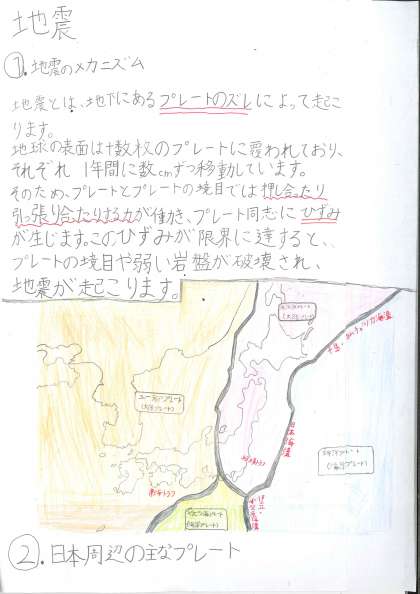 地震
①.地震のメカニズム
地震とは、地下にあるプレートのズレによって起こ
ります。
地球の表面は十数枚のプレートに覆われており、
それぞれ 1年間に数cmずつ移動しています。
そのため、プレートとプレートの境目では押し合ったり
引っ張り合たりする力が働き、プレート同志にひずみ
が生じます。このひずみが限界に達すると、
プレートの境目や弱い岩盤が破壊され、
地震が起こります。
(大陸プレート)
日本海溝
ユーラシアプレート
(大陸プレート)
(海洋プレート)
南海トラフ
フィリピン海プレート
(海洋プレート)
②.日本周辺の主なプレート